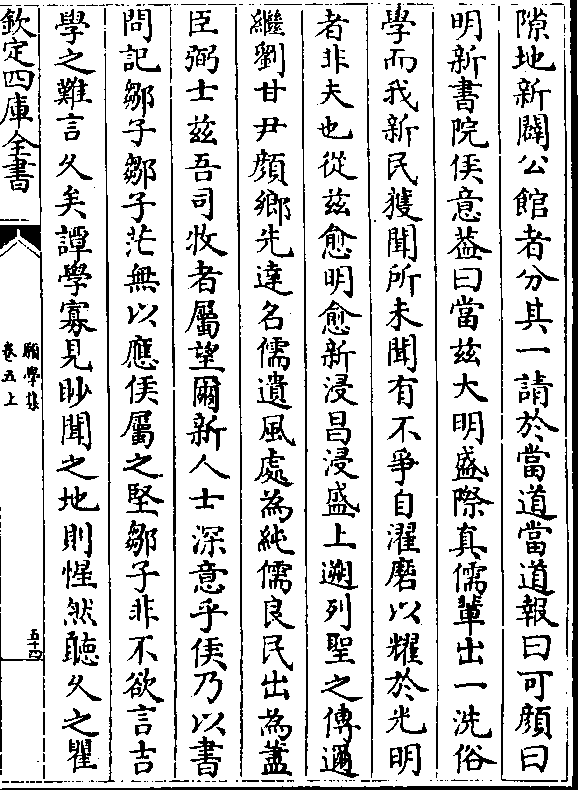 隙地新闢公館者分其一請於當道當道報曰可顔曰
明新書院侯意葢曰當兹大明盛際真儒輩出一洗俗
學而我新民獲聞所未聞有不爭自濯磨以耀於光明
者非夫也從兹愈明愈新浸昌浸盛上遡列聖之傳邇
繼劉甘尹顔鄉先達名儒遺風處為純儒良民出為藎
臣弼士兹吾司牧者屬望爾新人士深意乎侯乃以書
問記鄒子鄒子茫無以應侯屬之堅鄒子非不欲言吉
學之難言久矣譚學寡見眇聞之地則惺然聽久之瞿
欽定四庫全書
願學集
卷五上
五十四